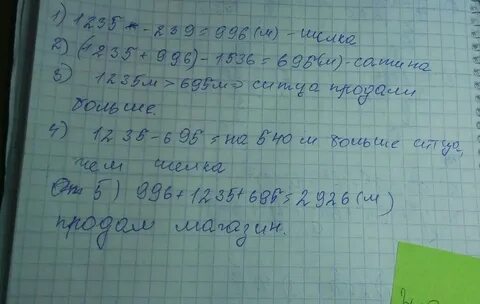 1) 1235 - 239 = 996 (м) - шелка
2) (1235 + 996) - 1536 = 695 (м) - сатина
3) 1235м > 695м => ситца продали
больше.
4) 1235 - 695 = на 540 м больше ситца,
чем шелка
От 5) 996 + 1235 + 695 = 2926 (м)
продал магазин.